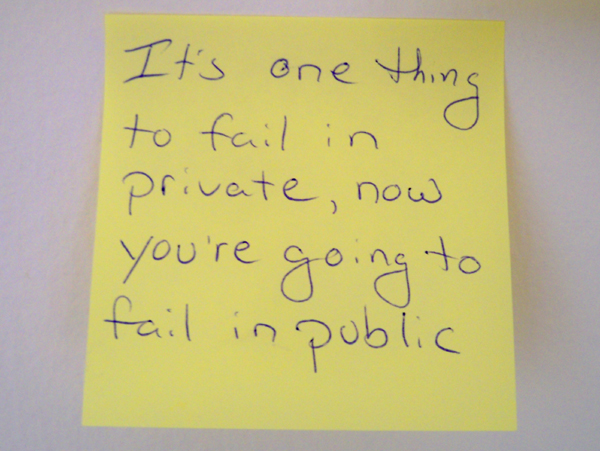 It's one thing
to fail in
private, now
you're going to
fail in public